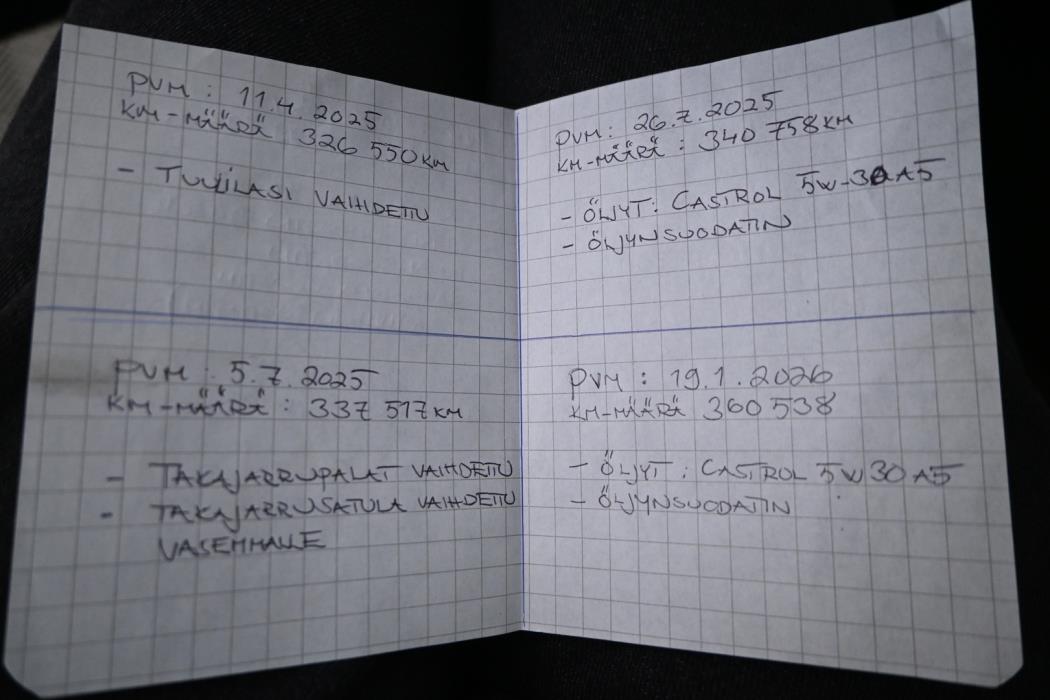 PVM : 11.4.2025
KM-MÄÄRÄ 326 550KM
- TUULILASI VAIHDETTU
PVM : 5.7.2025
KM-MÄÄRÄ : 337 517KM
- TAKAJARRUPALAT VAIHDETTU
- TAKAJARRUSATULA VAIHDETTU
VASEMMALLE
PVM : 26.7.2025
KM-MÄÄRÄ : 340 758KM
- ÖLJYT: CASTROL 5W-30 A5
- ÖLJYNSUODATIN
PVM : 19.1.2026
KM-MÄÄRÄ 360 538
- ÖLJYT : CASTROL 5W30 A5
- ÖLJYNSUODATIN